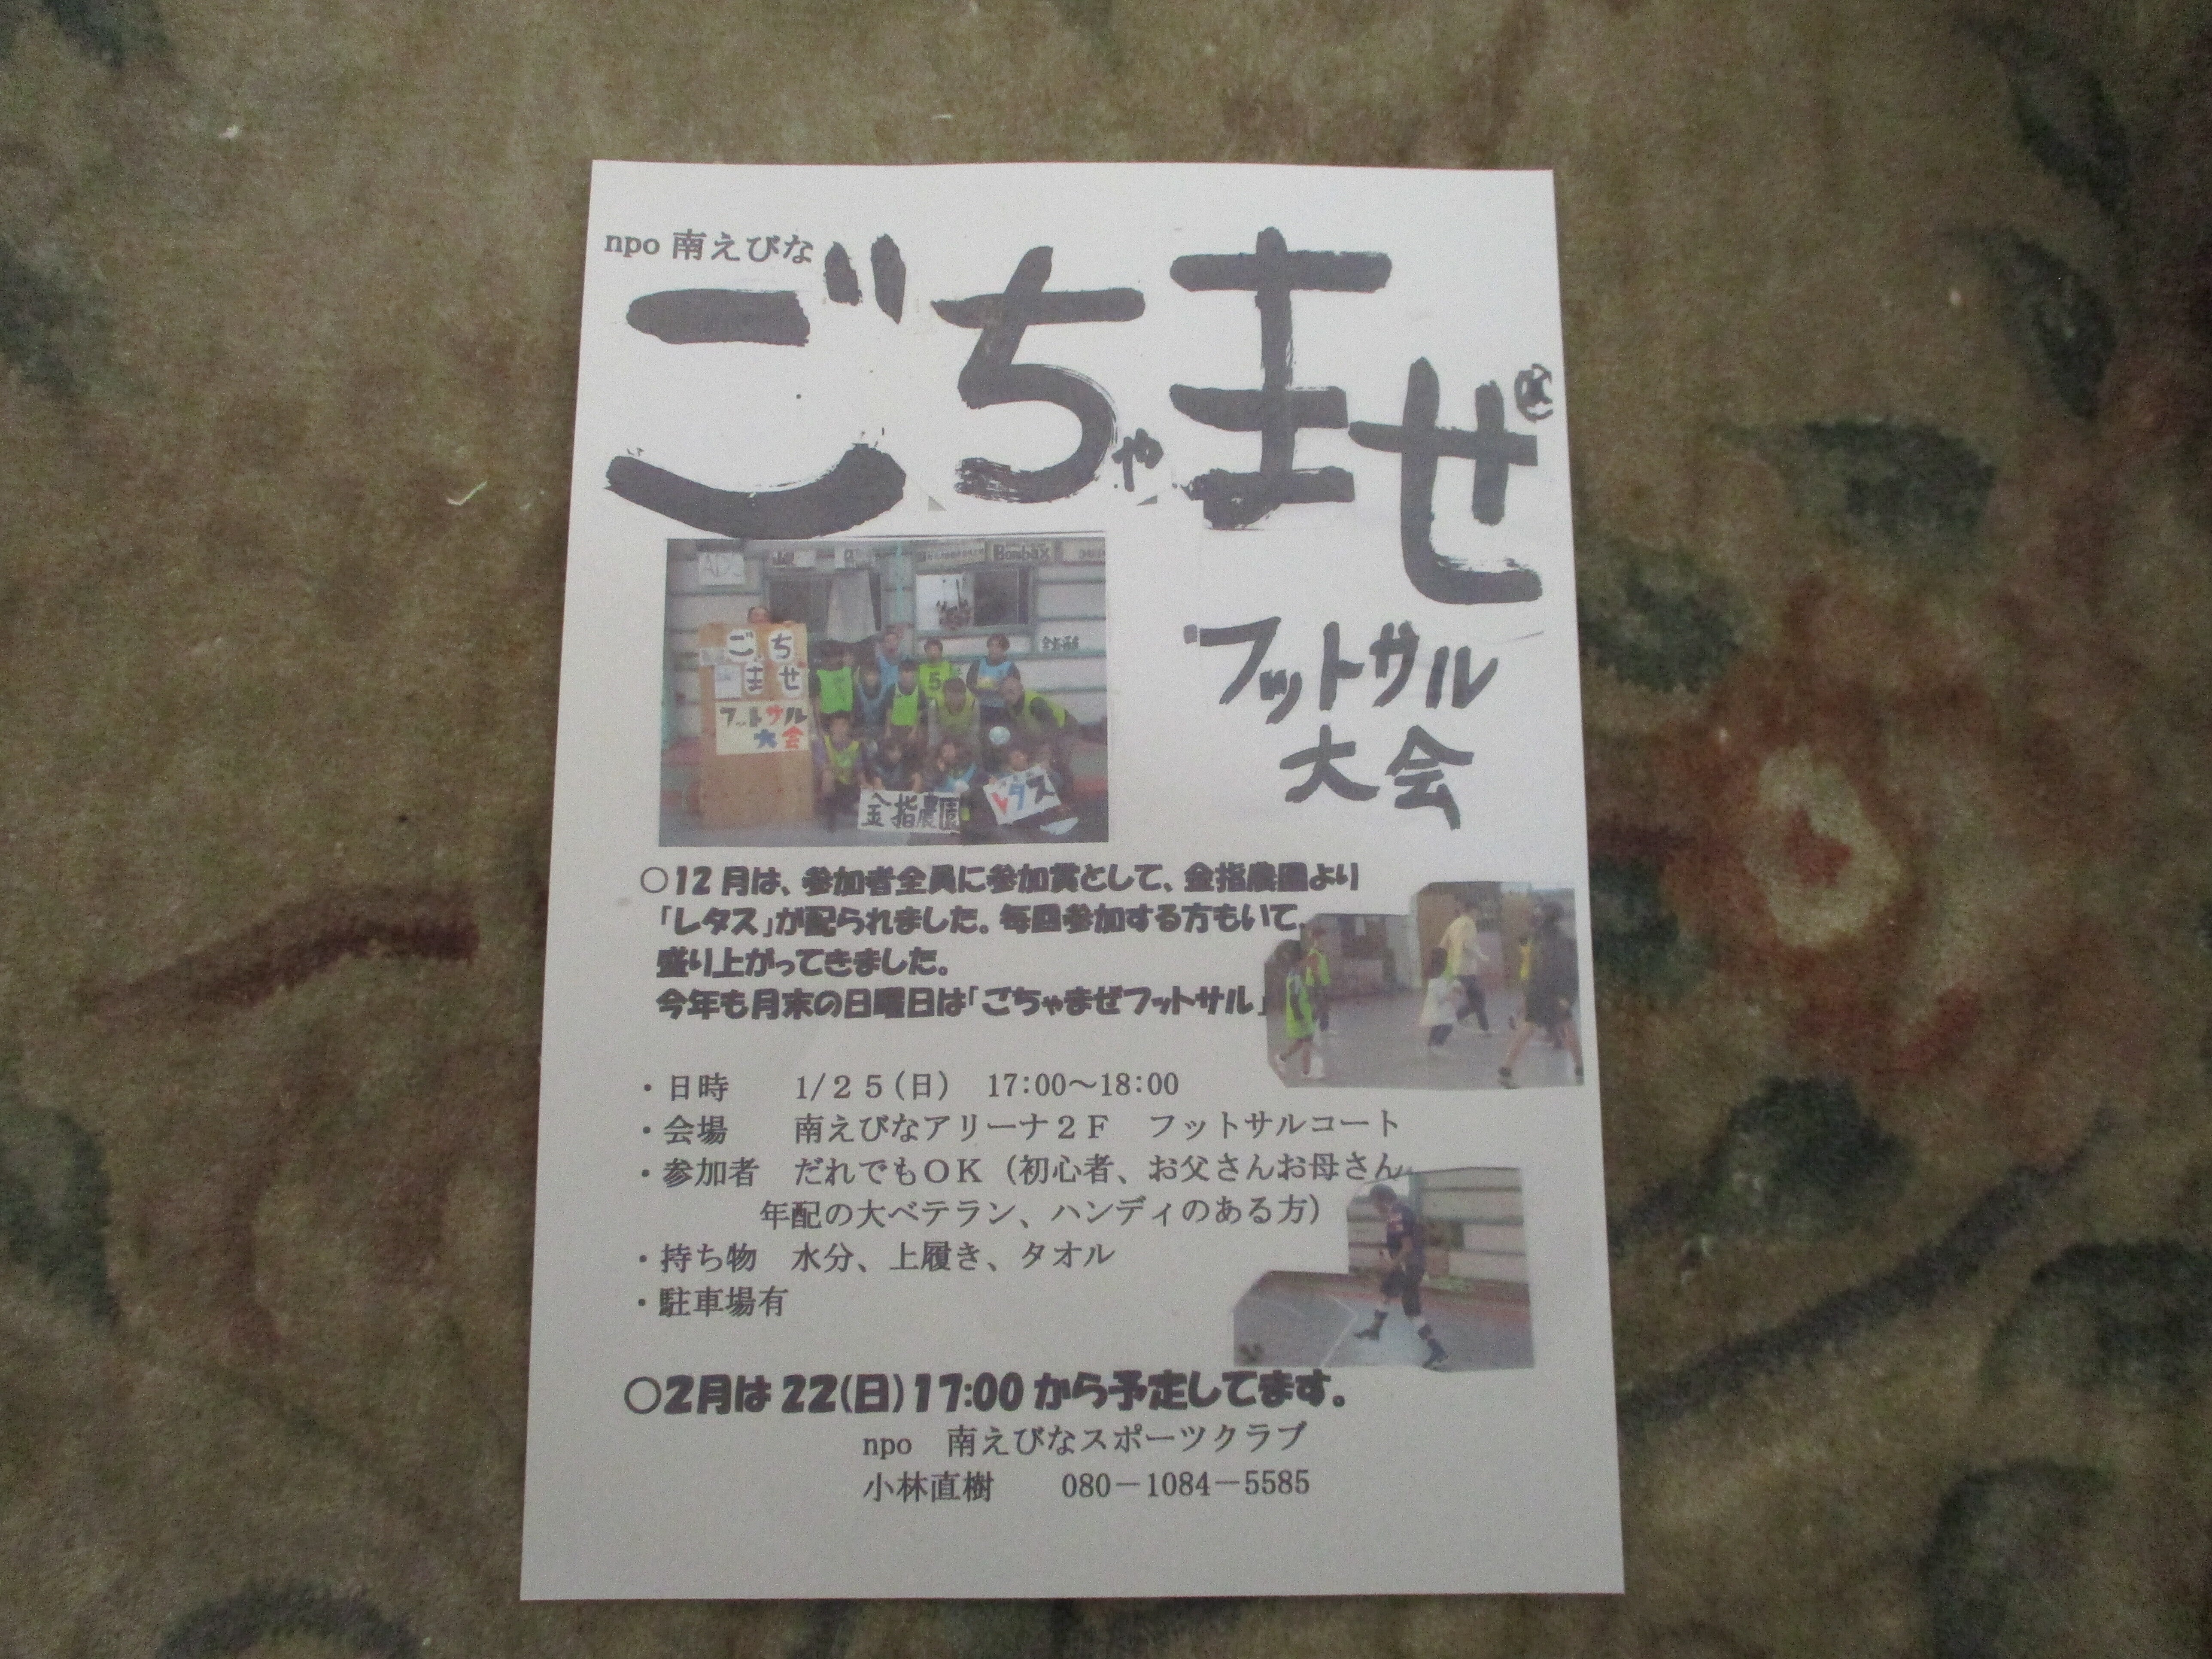 npo 南えびな
ごちゃまぜ
フットサル
大会
Bombax
ごち
まぜ
フットサル
大会
5
金指農園
レタス
○12月は、参加者全員に参加賞として、金指農園より
「レタス」が配られました。毎回参加する方もいて、
盛り上がってきました。
今年も月末の日曜日は「ごちゃまぜフットサル」
・日時　1/25(日)　17:00～18:00
・会場　南えびなアリーナ2F　フットサルコート
・参加者　だれでもOK（初心者、お父さんお母さん
年配の大ベテラン、ハンディのある方）
・持ち物　水分、上履き、タオル
・駐車場有
○2月は22(日)17:00から予定してます。
npo　南えびなスポーツクラブ
小林直樹　080－1084－5585